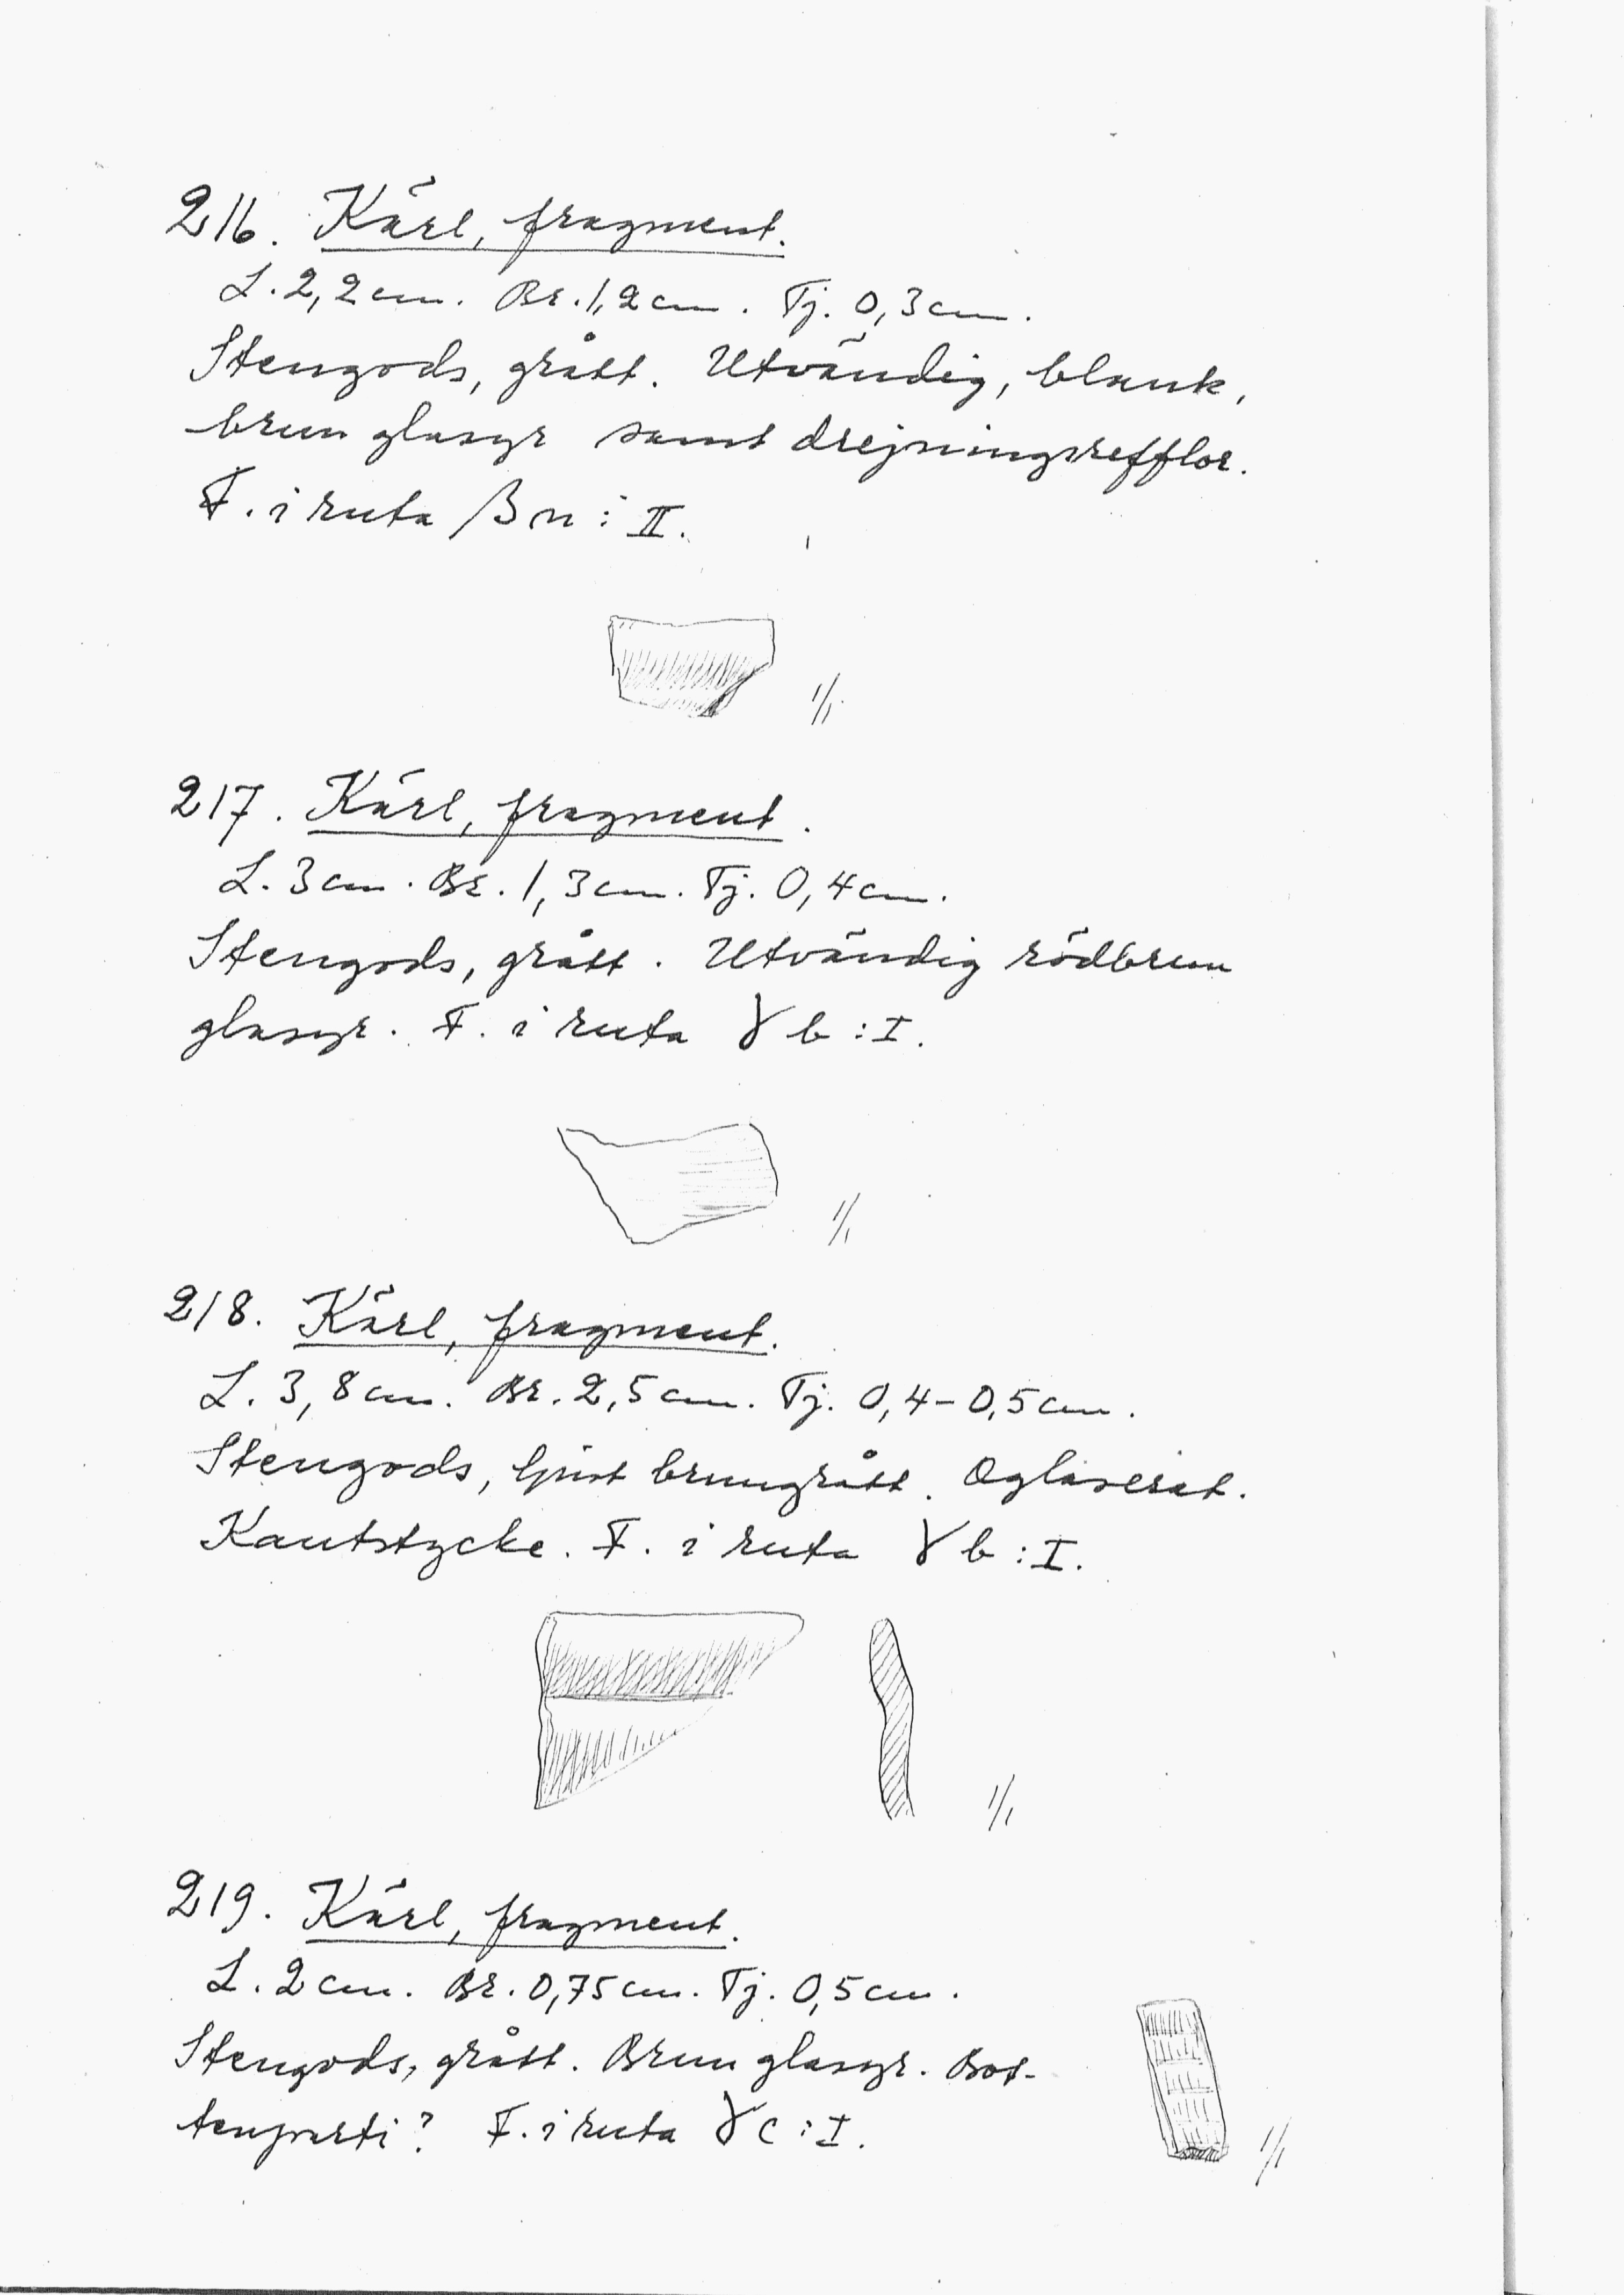 216. Kärl, fragment.
L. 2,2 cm. Br. 1,2 cm. Tj. 0,3 cm.
Stengods, grått. Utvändig, blank,
brun glasyr samt drejningsrefflor.
F. i ruta β n : II.
1/1
217. Kärl, fragment.
L. 3 cm. Br. 1,3 cm. Tj. 0,4 cm.
Stengods, grått. Utvändig rödbrun
glasyr. F. i ruta γ b : I.
1/1
218. Kärl, fragment.
L. 3,8 cm. Br. 2,5 cm. Tj. 0,4-0,5 cm.
Stengods, ljust brungrått. Oglaserat.
Kantstycke. F. i ruta γ b : I.
1/1
219. Kärl, fragment.
L. 2 cm. Br. 0,75 cm. Tj. 0,5 cm.
Stengods, grått. Brun glasyr. Bot-
tenparti? F. i ruta γ c : I.
1/1